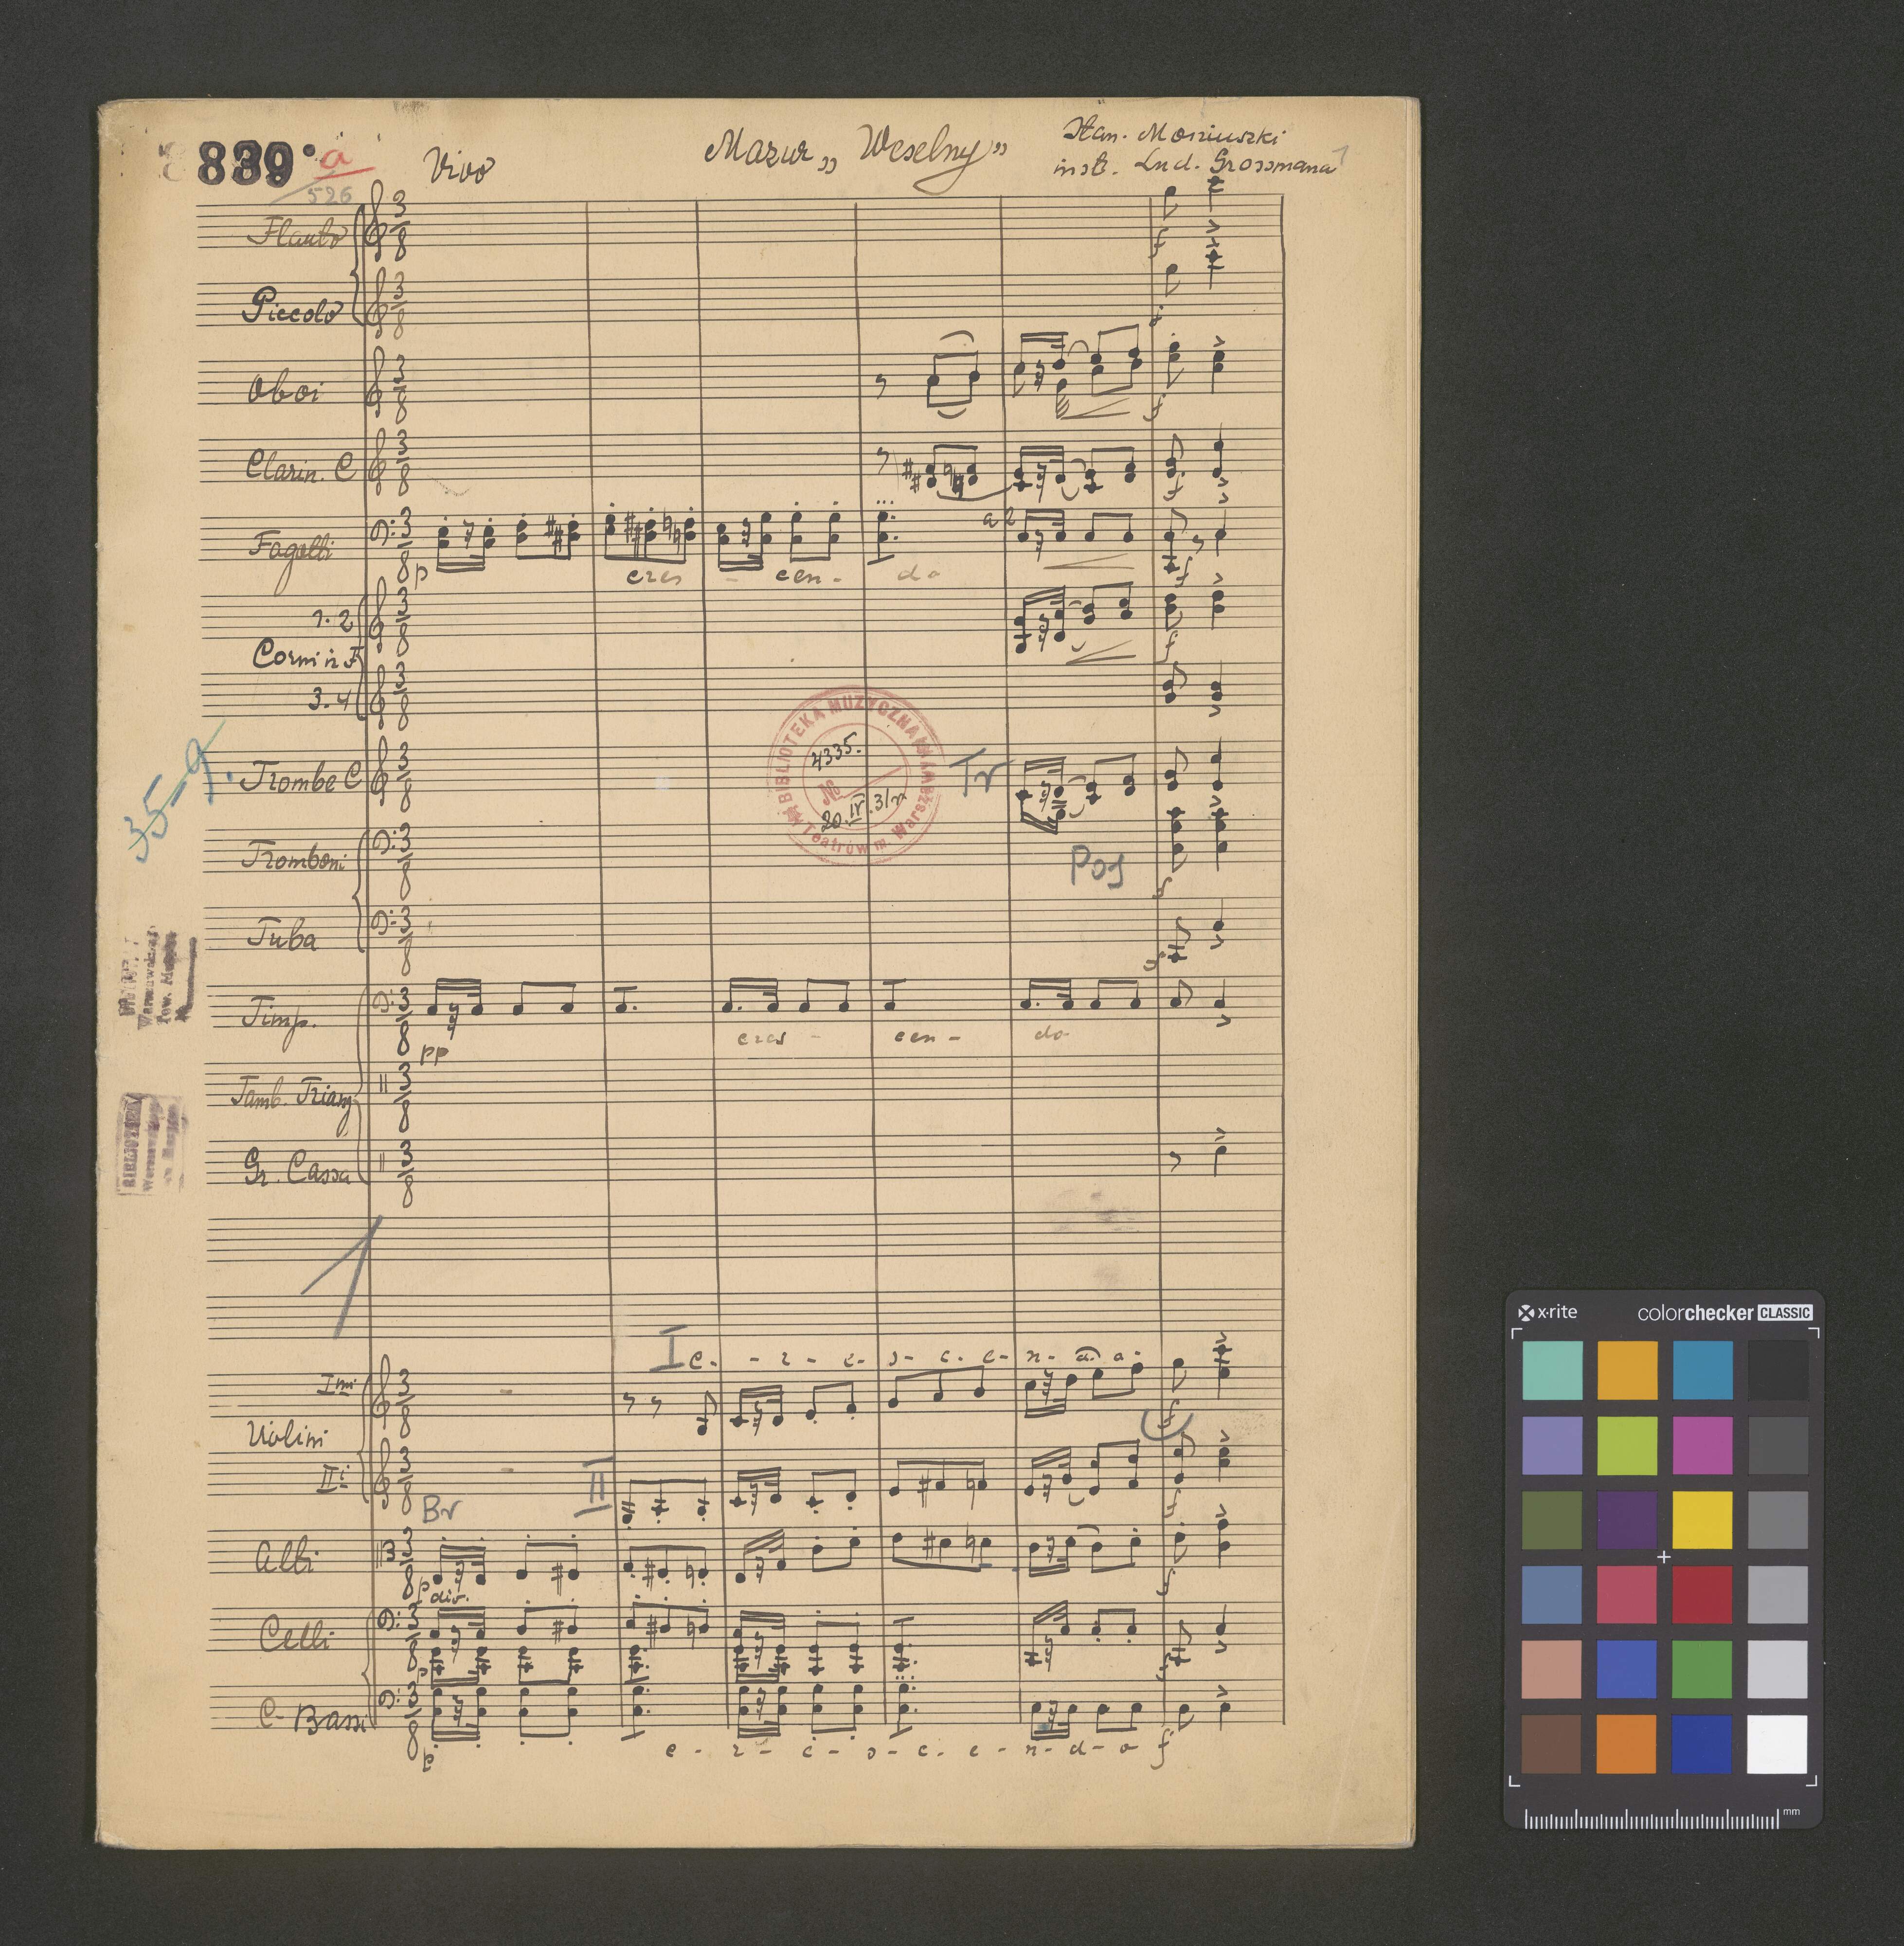 839 a
526
Vivo
Mazur „ Weselny”
Stan. Moniuszki
inst. Lud. Grossmana
1
Flauto
Piccolo
Oboi
Clarin. C
Fagotti
p
cres - cen - do
a 2
f
1. 2
Corni in F
3. 4
35-9.
Trombe C
Tr
BIBLIOTEKA MUZYCZNA
4335.
№
20.IV.31 r
Teatrów m. Warszawy
Tromboni
Pos
Tuba
Timp.
pp
cres - cen - do
Tamb. Triang
Gr. Cassa
BIBLIOTEKA
1
I
c - r - e - s - c - e - n - d - o
Imi
Violini
IIi
II
Br
Alti
p
div.
Celli
p
C-Bassi
p
c - r - e - s - c - e - n - d - o f
x·rite
colorchecker CLASSIC
mm